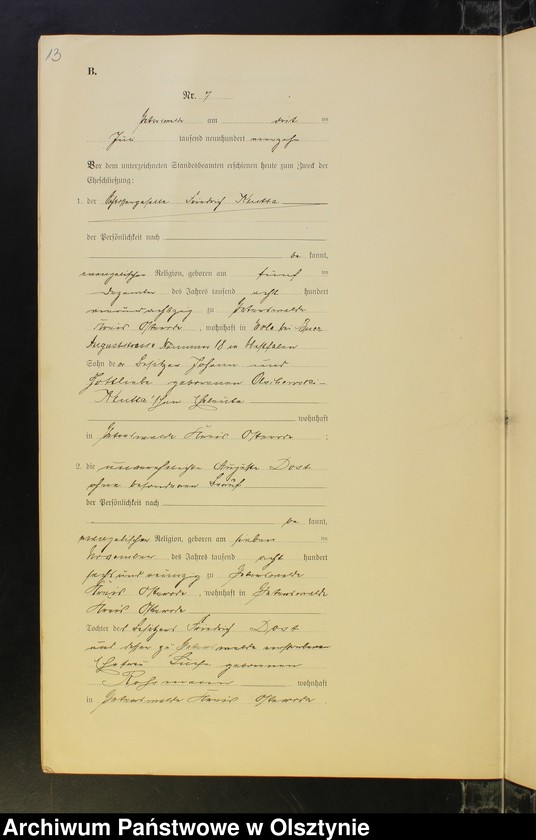 13
B.
Nr. 7
am drei ten
Juni tausend neunhundert vierzehn
Vor dem unterzeichneten Standesbeamten erschienen heute zum Zweck der
Eheschließung:
1. der Friedrich Kutta
der Persönlichkeit nach
be kannt,
evangelischer Religion, geboren am fünf ten
Dezember des Jahres tausend acht hundert
neunundachtzig zu
Kreis Osterode, wohnhaft in bei
Auguststrasse Nummer in Westfalen
Sohn der Besitzer Johann und
Gottliebe geborenen
Kutta'schen Eheleute
wohnhaft
in Kreis Osterode ;
2. die unverehelichte Auguste Dost
ohne besonderen Beruf
der Persönlichkeit nach
be kannt,
evangelischer Religion, geboren am sieben ten
November des Jahres tausend acht hundert
sechsundneunzig zu
Kreis Osterode, wohnhaft in
Kreis Osterode
Tochter des Besitzers Friedrich Dost
und dessen zu verstorbenen
Ehefrau geborenen
wohnhaft
in Kreis Osterode.
Archiwum Państwowe w Olsztynie